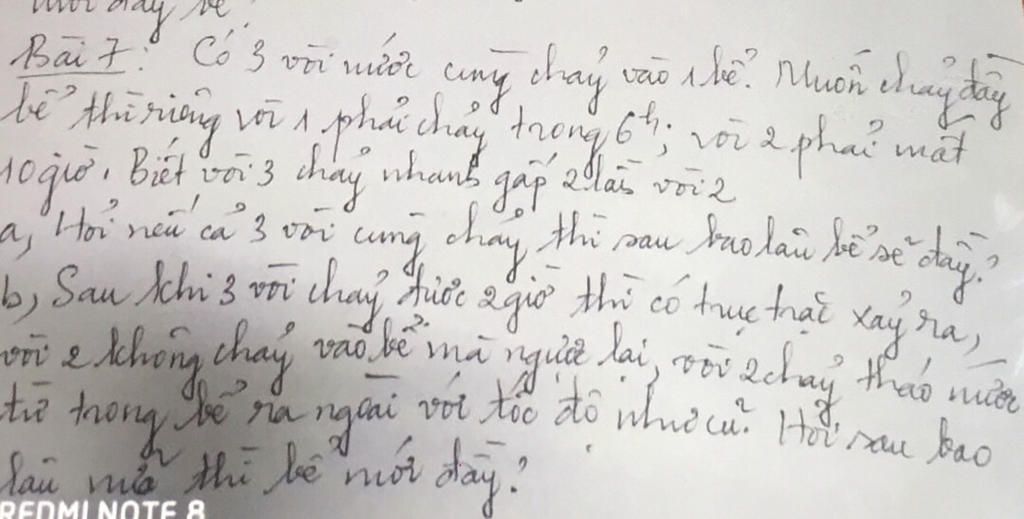 mới đầy bể
Bài 7: Có 3 vòi nước cùng chảy vào 1 bể. Muốn chảy đầy
bể thì riêng vòi 1 phải chảy trong 6h; vòi 2 phải mất
10 giờ. Biết vòi 3 chảy nhanh gấp 2 lần vòi 2
a, Hỏi nếu cả 3 vòi cùng chảy thì sau bao lâu bể sẽ đầy?
b, Sau khi 3 vòi chảy được 2 giờ thì có trục trặc xảy ra,
vòi 2 không chảy vào bể mà ngược lại, vòi 2 chảy tháo nước
từ trong bể ra ngoài với tốc độ như cũ. Hỏi sau bao
lâu nữa thì bể mới đầy?
REDMI NOTE 8